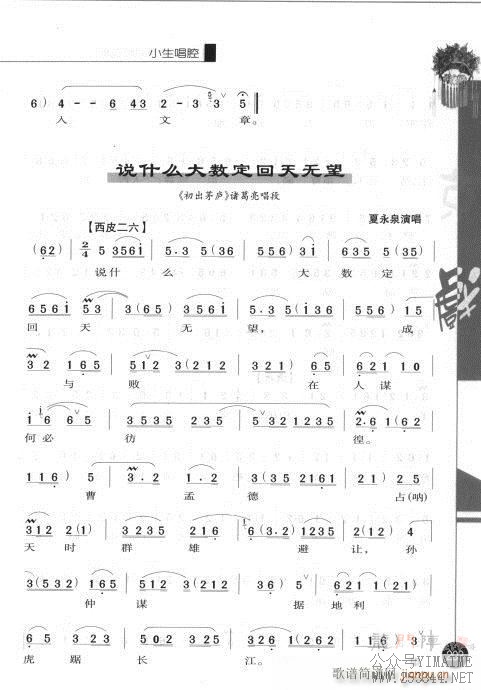 小生唱腔
6) 4 - - 6 43 2 - 3 3 5
人 文 章。
说什么大数定回天无望
《初出茅庐》诸葛亮唱段
夏永泉演唱
【西皮二六】
(62) 2/4 5 3561 5.3 5(36 5 5) 5.3 5 6
说什 么 大 数 定
6561 53 3(65) 3561 6(3561 635) 15
回 天 无 望, 成
3 2 165 512 3(212 321) 65 621 10
与 败 在 人 谋
116 65 3535 5235 2356 2.1(62
何必 彷 徨。
116) 5 3.5 (3 235 2161) 5 65(6)
曹 孟 德 占(呐)
312 2(1) 3235 216 6(3.2) 1235 2(12) 4
天时 群 雄 避 让, 孙
3(532 165 512) 3(212 35) 6 621 21
仲 谋 据 地利
65 3 5 3235 2321 6(123 126)
虎 踞 长 江。
歌谱简谱网 www.jianpu.cn
公众号YIMAIME
www.295844.NET